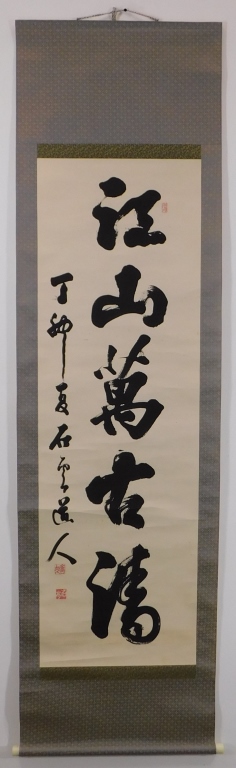 江山萬古清
丁卯夏石雲道人